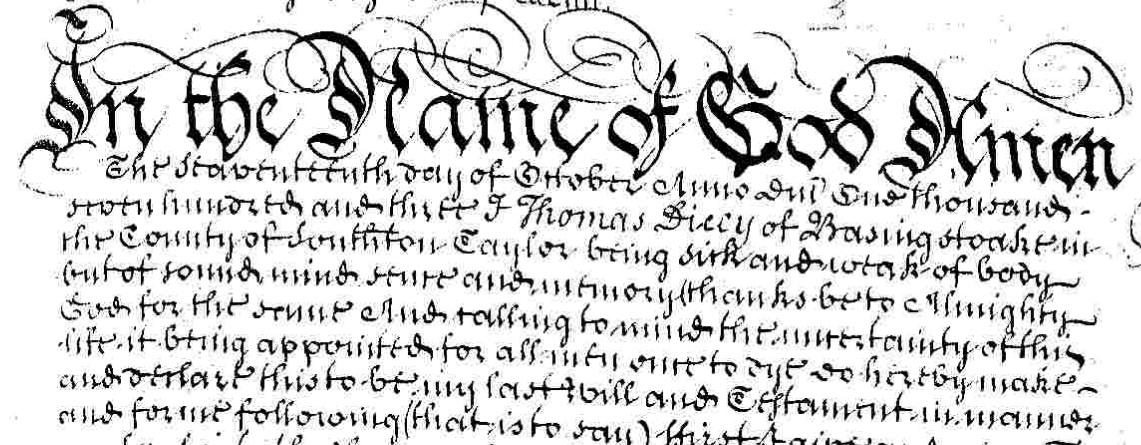 In the Name of God Amen
The Seaventeenth day of October Anno Dni One thousand
seven hundred and three I Thomas of Basingstoake in
the County of Southton Taylor being sick and weak of body
but of sound mind sence and memory (thanks be to Allmighty
God for the same And calling to mind the uncertainty of this
life it being appointed for all men once to dye do hereby make
and declare this to be my last Will and Testament in manner
and forme following (that is to say) First